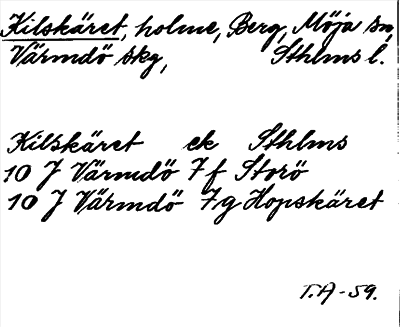 Kilskäret, holme, Berg, Möja sn,
Värmdö skg, Sthlms l.
Kilskäret ek Sthlms
10 J Värmdö 7 f Storö
10 J Värmdö 7 g Hopskäret
T.A-59.